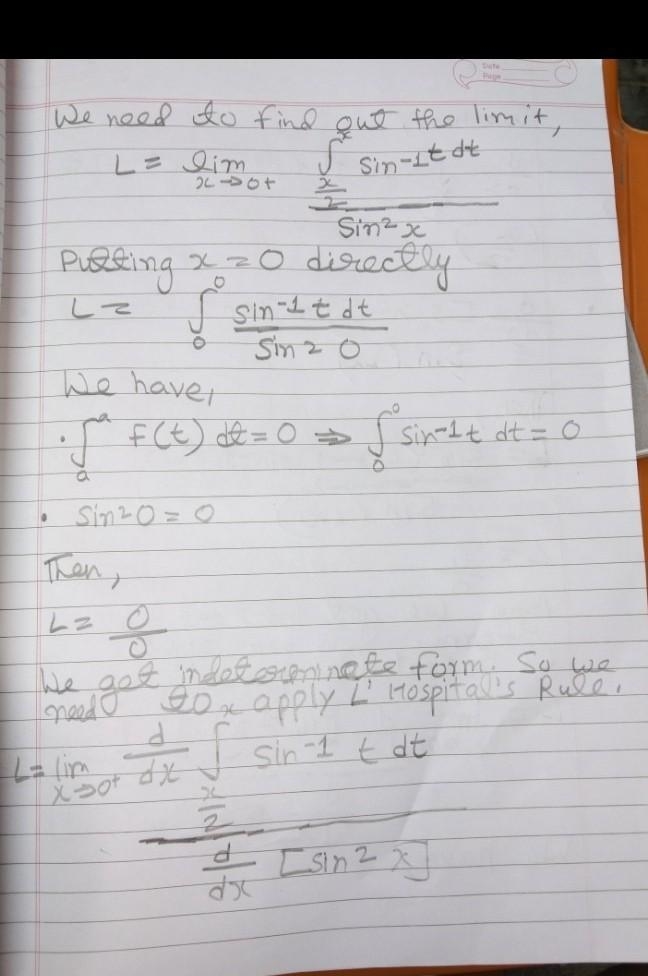 Date
Page
We need to find out the limit,
L = lim x→0+ ∫ x/2 x sin-1 t dt / Sin² x
Putting x = 0 directly
L = ∫ 0 0 sin-1 t dt / Sin 2 0
We have,
• ∫ a a f(t) dt = 0 ⇒ ∫ 0 0 sin-1 t dt = 0
• Sin²0 = 0
Then,
L = 0/0
We get indeterminate form. So we
need to apply L' Hospital's Rule.
L = lim x→0+ d/dx ∫ x/2 x sin-1 t dt / d/dx [sin² x]